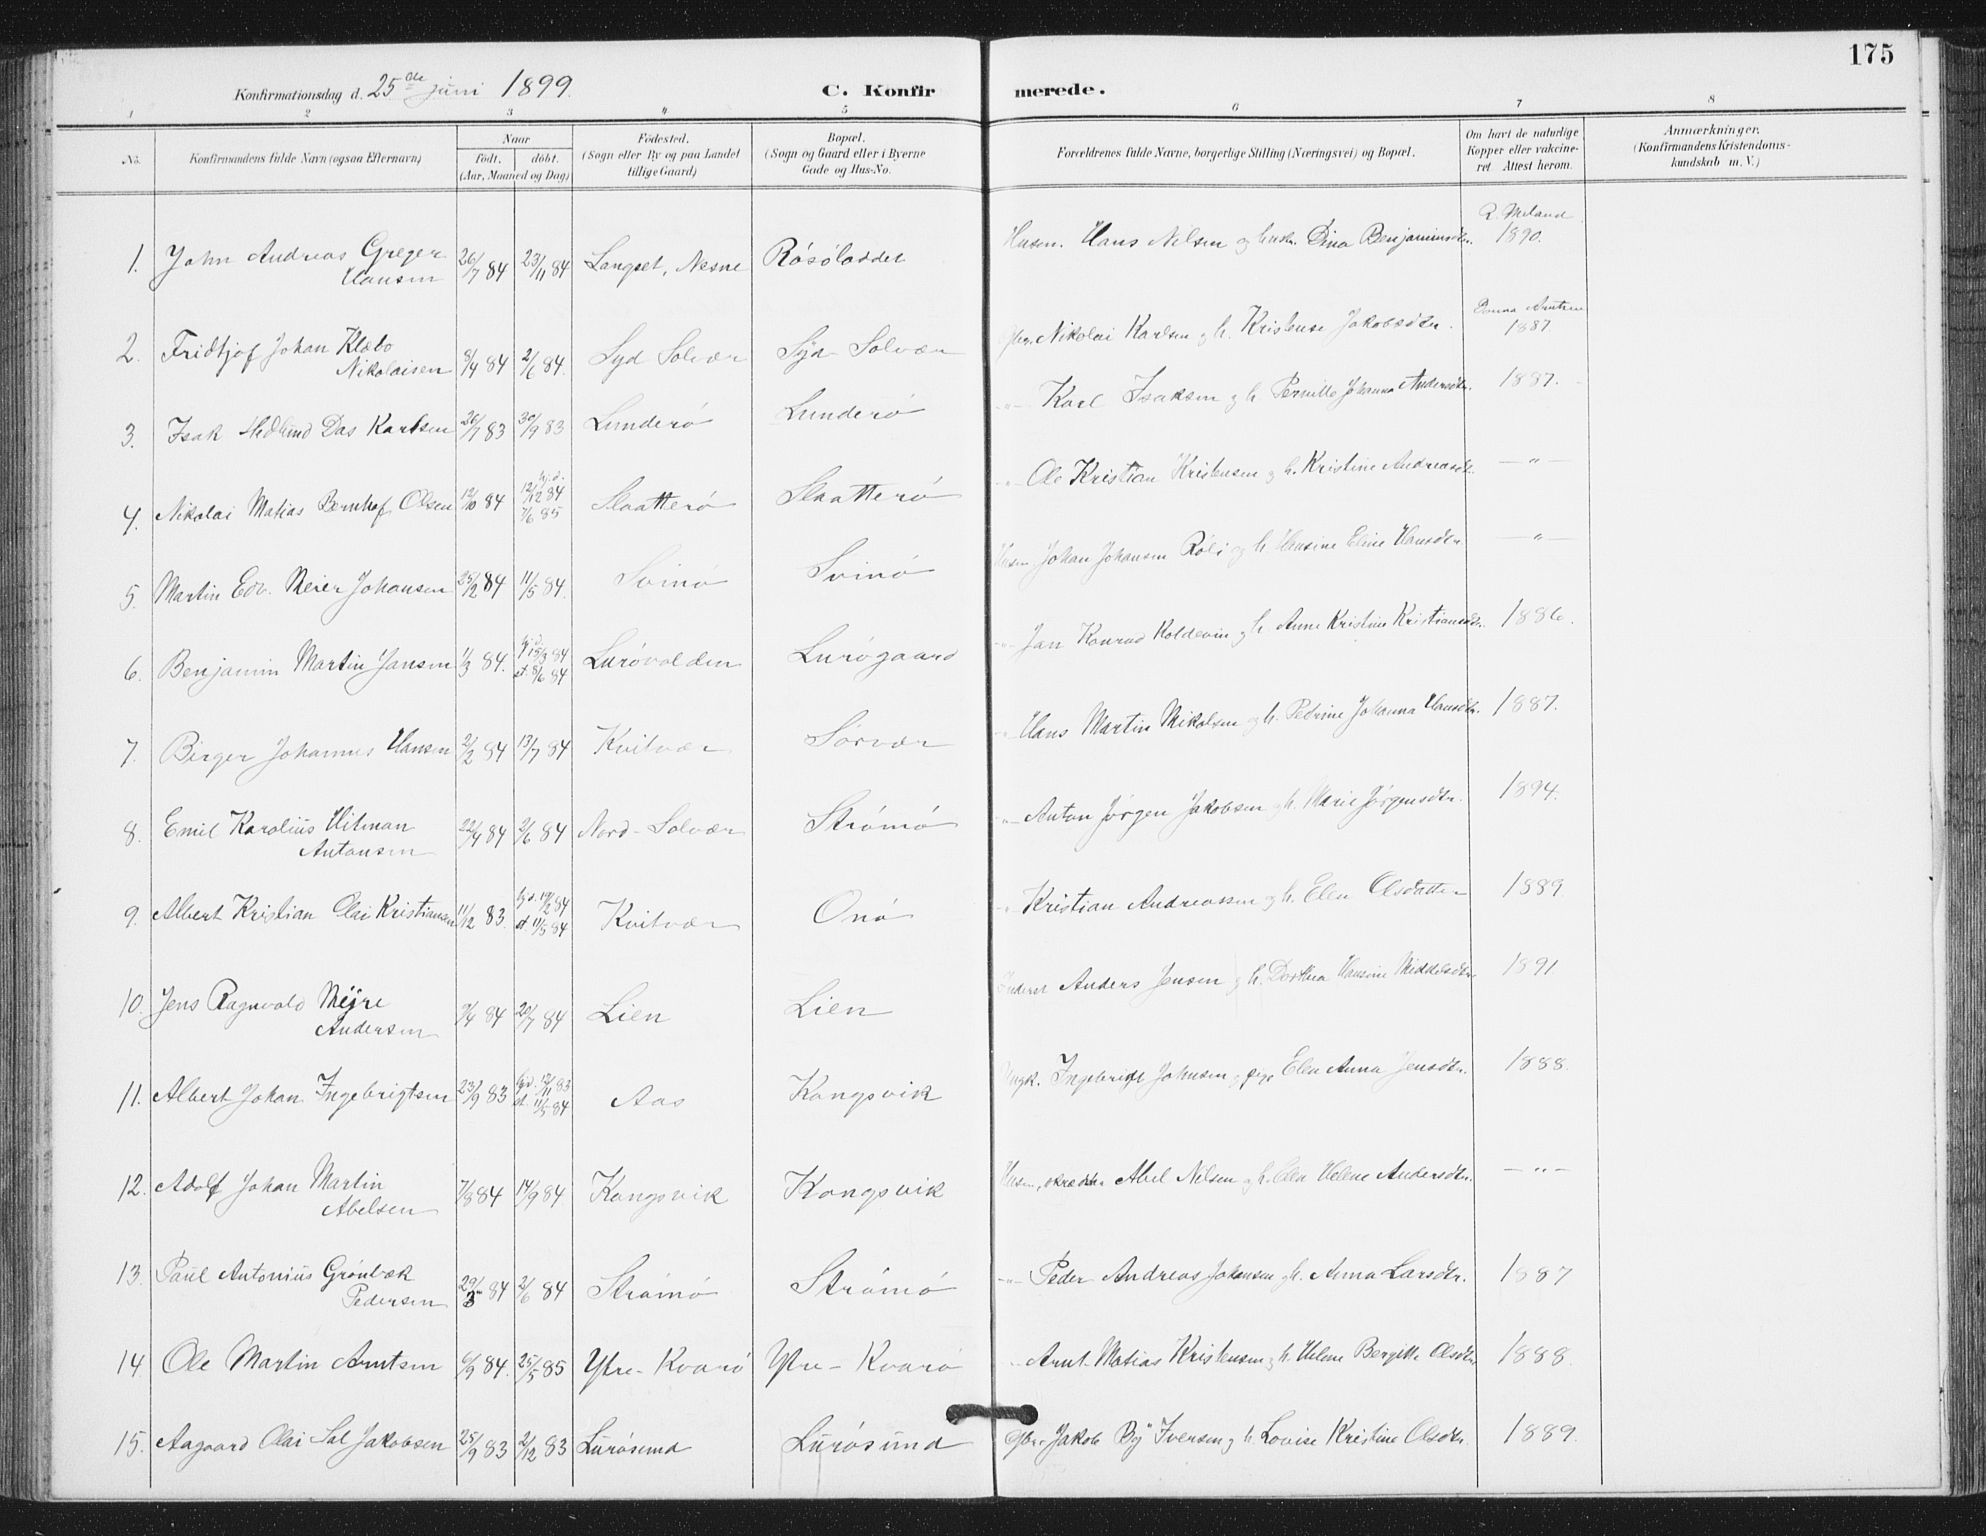 175
Konfirmationsdag d. 25de juni 1899.
C. Konfirmerede.
1 2 3 4 5 6 7 8
No. Konfirmandens fulde Navn (ogsaa Efternavn) Naar født, døbt. (Aar, Maaned og Dag) Fødested. (Sogn eller By og paa Landet tillige Gaard) Bopæl. (Sogn og Gaard eller i Byerne Gade og Hus-No. Forældrenes fulde Navne, borgerlige Stilling (Næringsvei) og Bopæl. Om havt de naturlige Kopper eller vakcineret. Attest herom. Anmærkninger. (Konfirmandens Kristendomskundskab m. V.)
1. John Andreas Greger Hansen 26/7 84 23/11 84 Langset, Nesne Røsøloddet Husm. Hans Nilsen og hustr. Dina Benjaminsdtr. R. Meland 1890.
2. Fridtjof Johan Klæbo Nikolaisen 8/4 84 2/6 84. Syd Solvær Syd Solvær Gbr. Nikolai Karlsen og h. Kristense Jakobsdtr. Arntsen 1887
3. Isak Hedlund Das Karlsen 26/7 83 30/9 83 Lunderø Lunderø -"- Karl Isaksen og h. Pernille Johanna Andersdtr. 1887.
4. Nikolai Matias Bernhof Olsen 12/10 84 hj. d. 12/12 84 7/6 85 Slaatterø Slaatterø -"- Ole Kristian Kristensen og h. Kristine Andreasdtr. —"—
5. Martin Edv. Meier Johansen 25/2 84 11/5 84. Svinø Svinø Husm Johan Johansen Røli og h. Hansine Eline Hansdtr. —"—
6. Benjamin Martin Jansen 1/3 84. hj. d. 15/3 84 st. 8/6 84 Lurøvolden Lurøgaard -"- Jan Konrad Koldevin og h. Anne Kristine Kristiansdtr. 1886.
7. Birger Johannes Hansen 2/2 84 13/7 84 Kvitvær Sørvær -"- Hans Martin Nikolsen og h. Petrine Johanna Hansdtr. 1887.
8. Emil Karolius Hitman Antonsen 22/4 84 2/6 84 Nord-Solvær Strømø -"- Anton Jørgen Jakobsen og h. Marie Jørgensdtr. 1894.
9. Albert Kristian Olai Kristiansen 11/12 83. hj. d. 19/2 84 st. 11/5 84 Kvitvær Onø -"- Kristian Andreassen og h. Elen Olsdatter 1889.
10. Jens Ragnvald Mejre Andersen 9/4 84 20/7 84 Lien Lien Inderst Anders Jensen og h. Dorthea Hansine Middelsdtr. 1891
11. Albert Johan Ingebrigtsen 23/9 83 hj. d. 12/11 83 st. 11/5 84 Aas Kongsvik Ungk. Ingebrigt Johnsen og pige Elen Anna Jensdtr. 1888.
12. Adolf Johan Martin Abelsen 7/8 84 14/9 84. Kongsvik Kongsvik Husm, skrædder Abel Nilsen og h. Elen Helene Andersdtr. —"—
13. Paul Antonius Grønbæk Pedersen 29/3 84 2/6 84 Strømø Strømø -"- Peder Andreas Johansen og h. Anna Larsdtr. 1887
14. Ole Martin Arntsen 6/9 84. 25/5 85 Ytre-Kvarø Ytre-Kvarø -"- Arnt Matias Kristensen og h. Helene Bergitte Olsdtr. 1888
15. Aagaard Olai Sal Jakobsen 25/9 83 2/12 83 Lurøsund Lurøsund Gbr. Jakob By Iversen og h. Lovise Kristine Olsdtr. 1889.